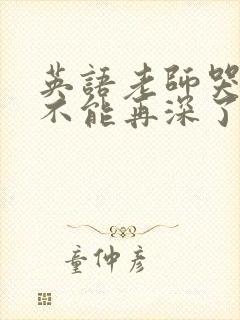 英語老師哭
不能再深了
童仲彦